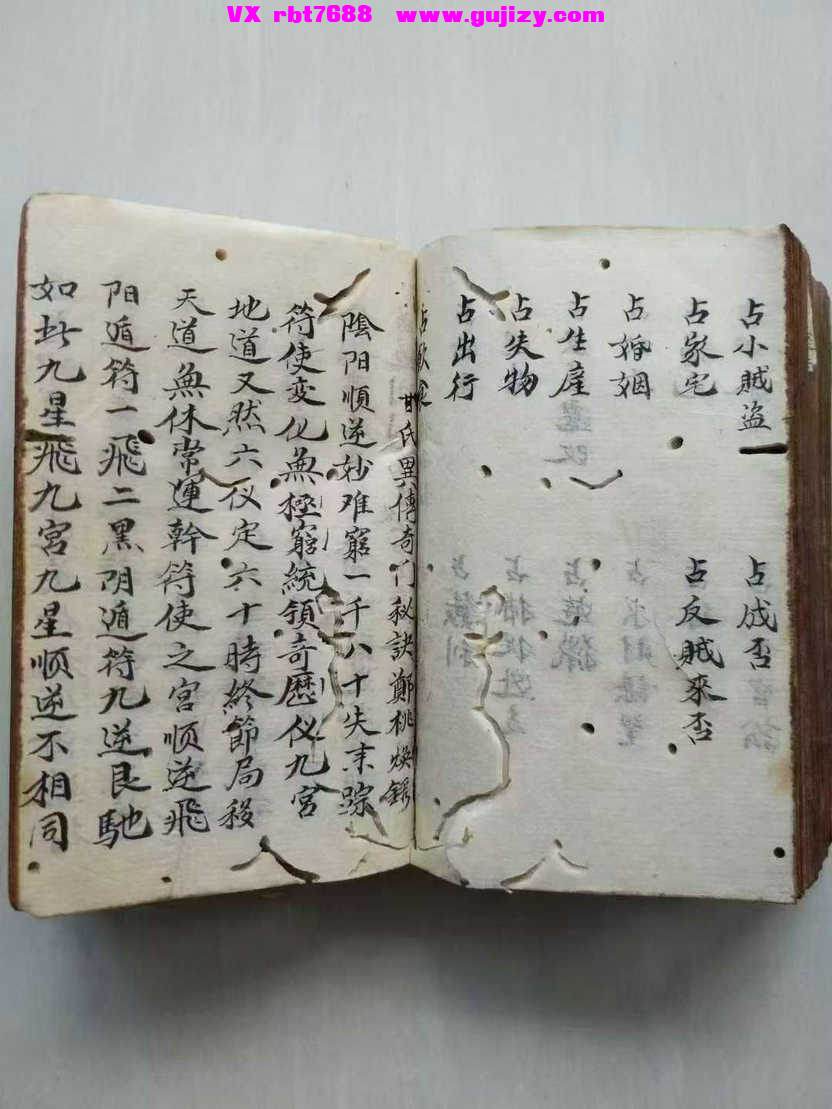 VX rbt7688 www.gujizy.com
占小賊盗 占成否
占家宅 占反賊來否
占婚姻
占生產
占失物
占出行
占飲食
甘氏異傳奇门秘訣鄭桃焕録
陰阳順逆妙难窮一千八十失末踪
符使变化無極窮統領奇歷仪九宮
地道又然六仪定六十時終節局移
天道無休常運幹符使之宮順逆飛
阳遁符一飛二黑阴遁符九逆艮馳
如此九星飛九宮九星順逆不相同